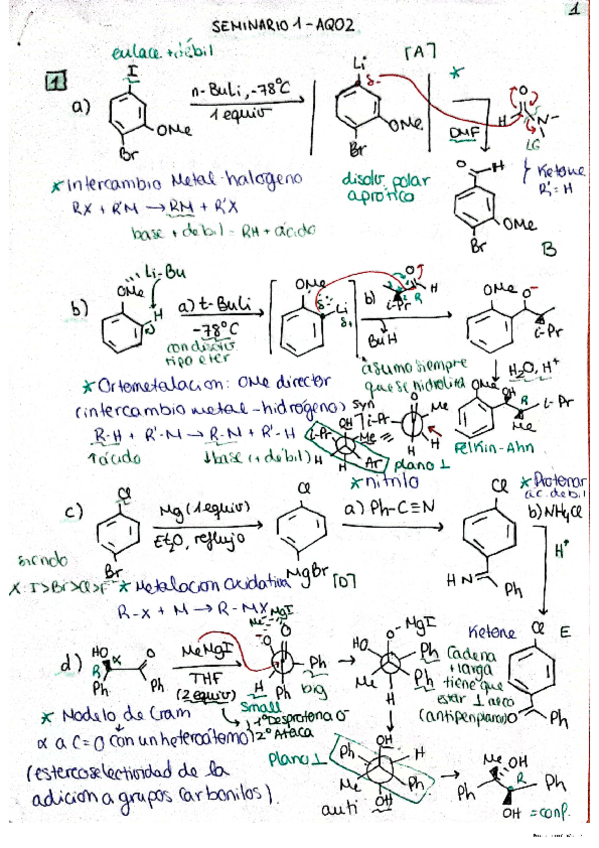 1
SEMINARIO 1 - AQO2
enlace + débil
[A]
1
a)
I
OMe
Br
n-BuLi, -78°C
1 equiv
Li
δ-
OMe
Br
*
DMF
O
H
N
LG
* Intercambio Metal-halogeno
RX + R'M → RM + R'X
base + debil = RH + ácido
disolv. polar
aprótico
O
H
OMe
Br
Ketone
R' = H
B
Li-Bu
OMe
H
b)
a) t-BuLi
-78°C
con disolv
tipo eter
OMe
Li
δ+
b)
O
H
i-Pr
R
BuH
OMe
O-
i-Pr
* Ortometalacion: OMe director
(intercambio metal-hidrógeno)
R-H + R'-M → R-M + R'-H
↑ácido
↓base (+ debil)
* asumo siempre
que se hidroliza
H2O, H+
syn
i-Pr
OH
Me
H
H
Ar
i-Pr
Me
H
H
plano ⊥
OMe
OH
R
i-Pr
Me
Felkin-Ahn
c)
Cl
Br
Mg (1 equiv)
Et2O, reflujo
Cl
MgBr
[D]
* nitrilo
a) Ph-C≡N
Cl
HN
Ph
* Protonar
ac. debil
b) NH4Cl
H+
siendo
X: I>Br>Cl>F
* Metalacion Oxidativa
R-X + M → R-MX
Ketone
E
Cl
O
Ph
d)
HO
α
O
R
Ph
Ph
MeMgI
THF
(2 equiv)
Me
MgI
-O
O
Ph
H
Ph
small
big
1º Desprotona
2º Ataca
HO
O-MgI
Ph
Me
Ph
H
Cadena
+ larga
tiene que
estar ⊥ al
(antiperiplanar)
* Modelo de Cram
α a C=O con un heteroátomo
(estereoselectividad de la
adicion a grupos carbonilos).
plano ⊥
OH
Ph
H
Me
Ph
OH
anti
Me
OH
R
Ph
Ph
OH
= conf.